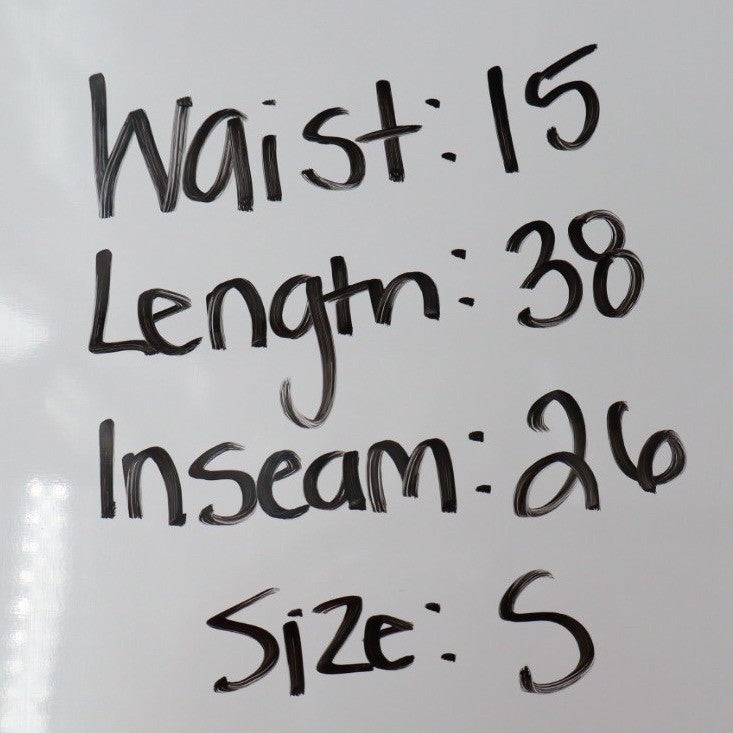 Waist: 15
Length: 38
Inseam: 26
Size: S